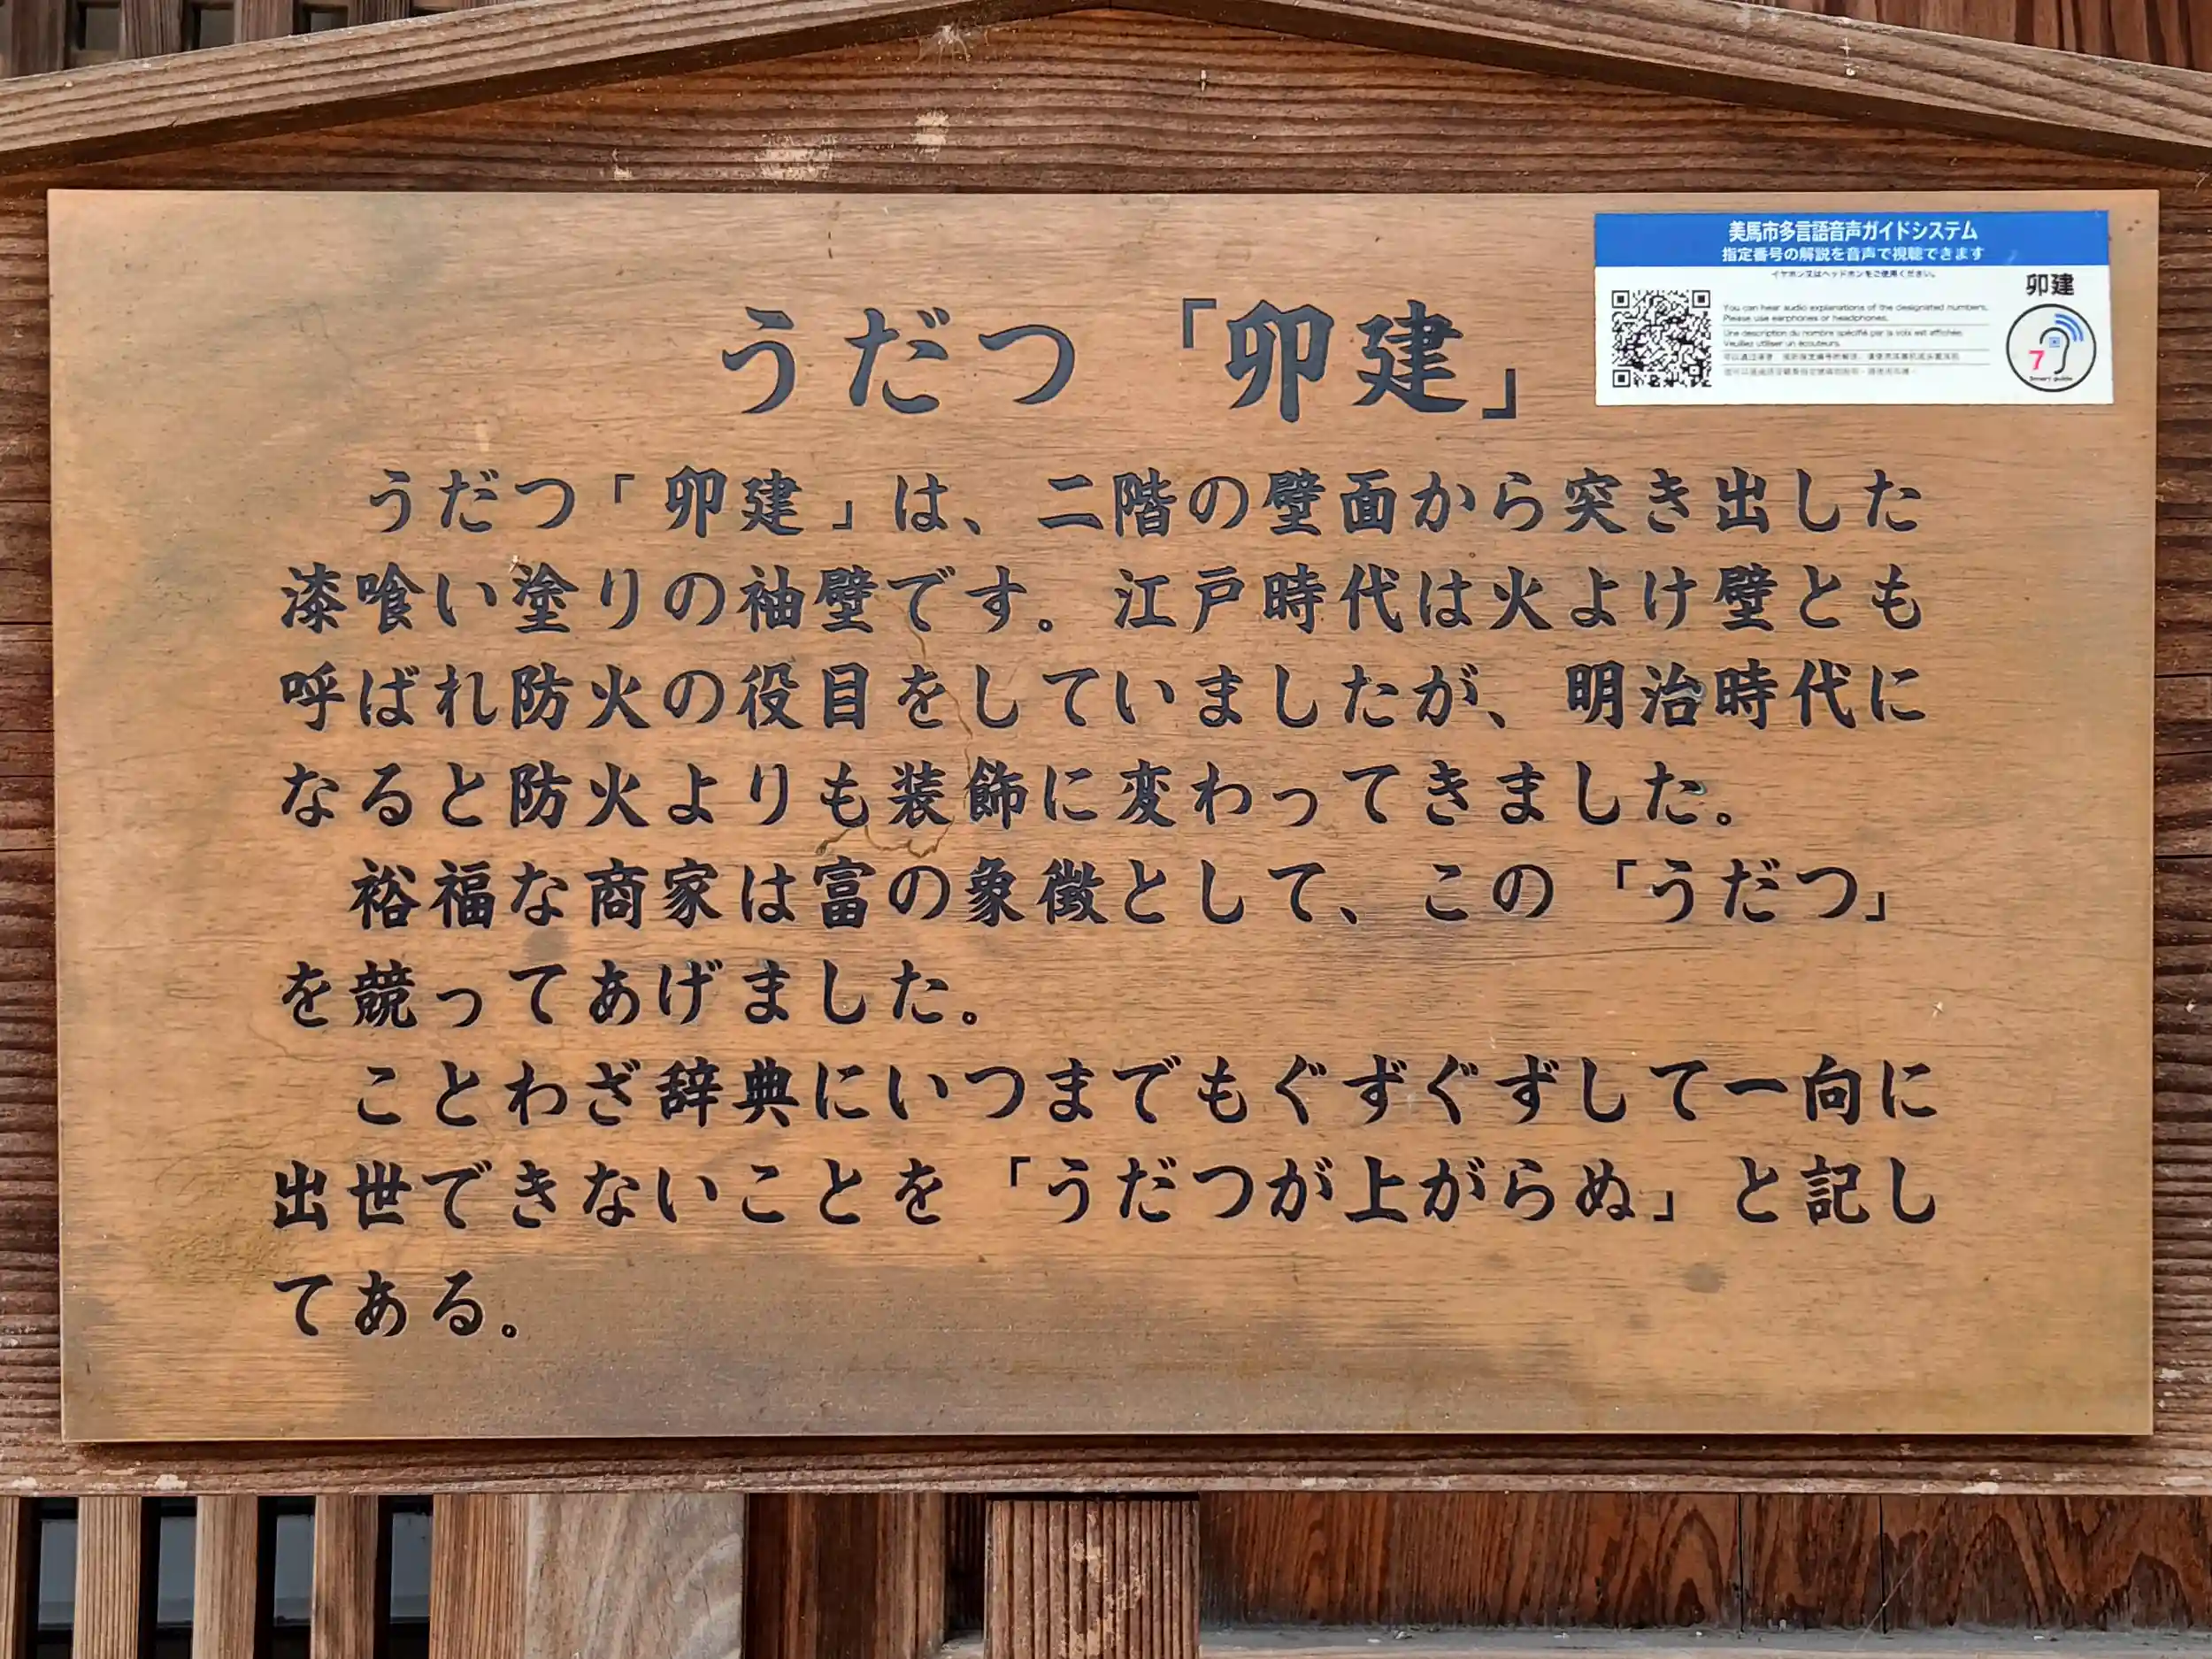 うだつ「卯建」
うだつ「卯建」は、二階の壁面から突き出した
漆喰い塗りの袖壁です。江戸時代は火よけ壁とも
呼ばれ防火の役目をしていましたが、明治時代に
なると防火よりも装飾に変わってきました。
裕福な商家は富の象徴として、この「うだつ」
を競ってあげました。
ことわざ辞典にいつまでもぐずぐずして一向に
出世できないことを「うだつが上がらぬ」と記し
てある。
美馬市多言語音声ガイドシステム
指定番号の解説を音声で視聴できます
イヤホン又はヘッドホンをご使用ください。
You can hear audio explanations of the designated numbers.
Please use earphones or headphones.
Une description du nombre spécifié par la voix est affichée.
Veuillez utiliser un écouteurs.
卯建
7
Smart guide